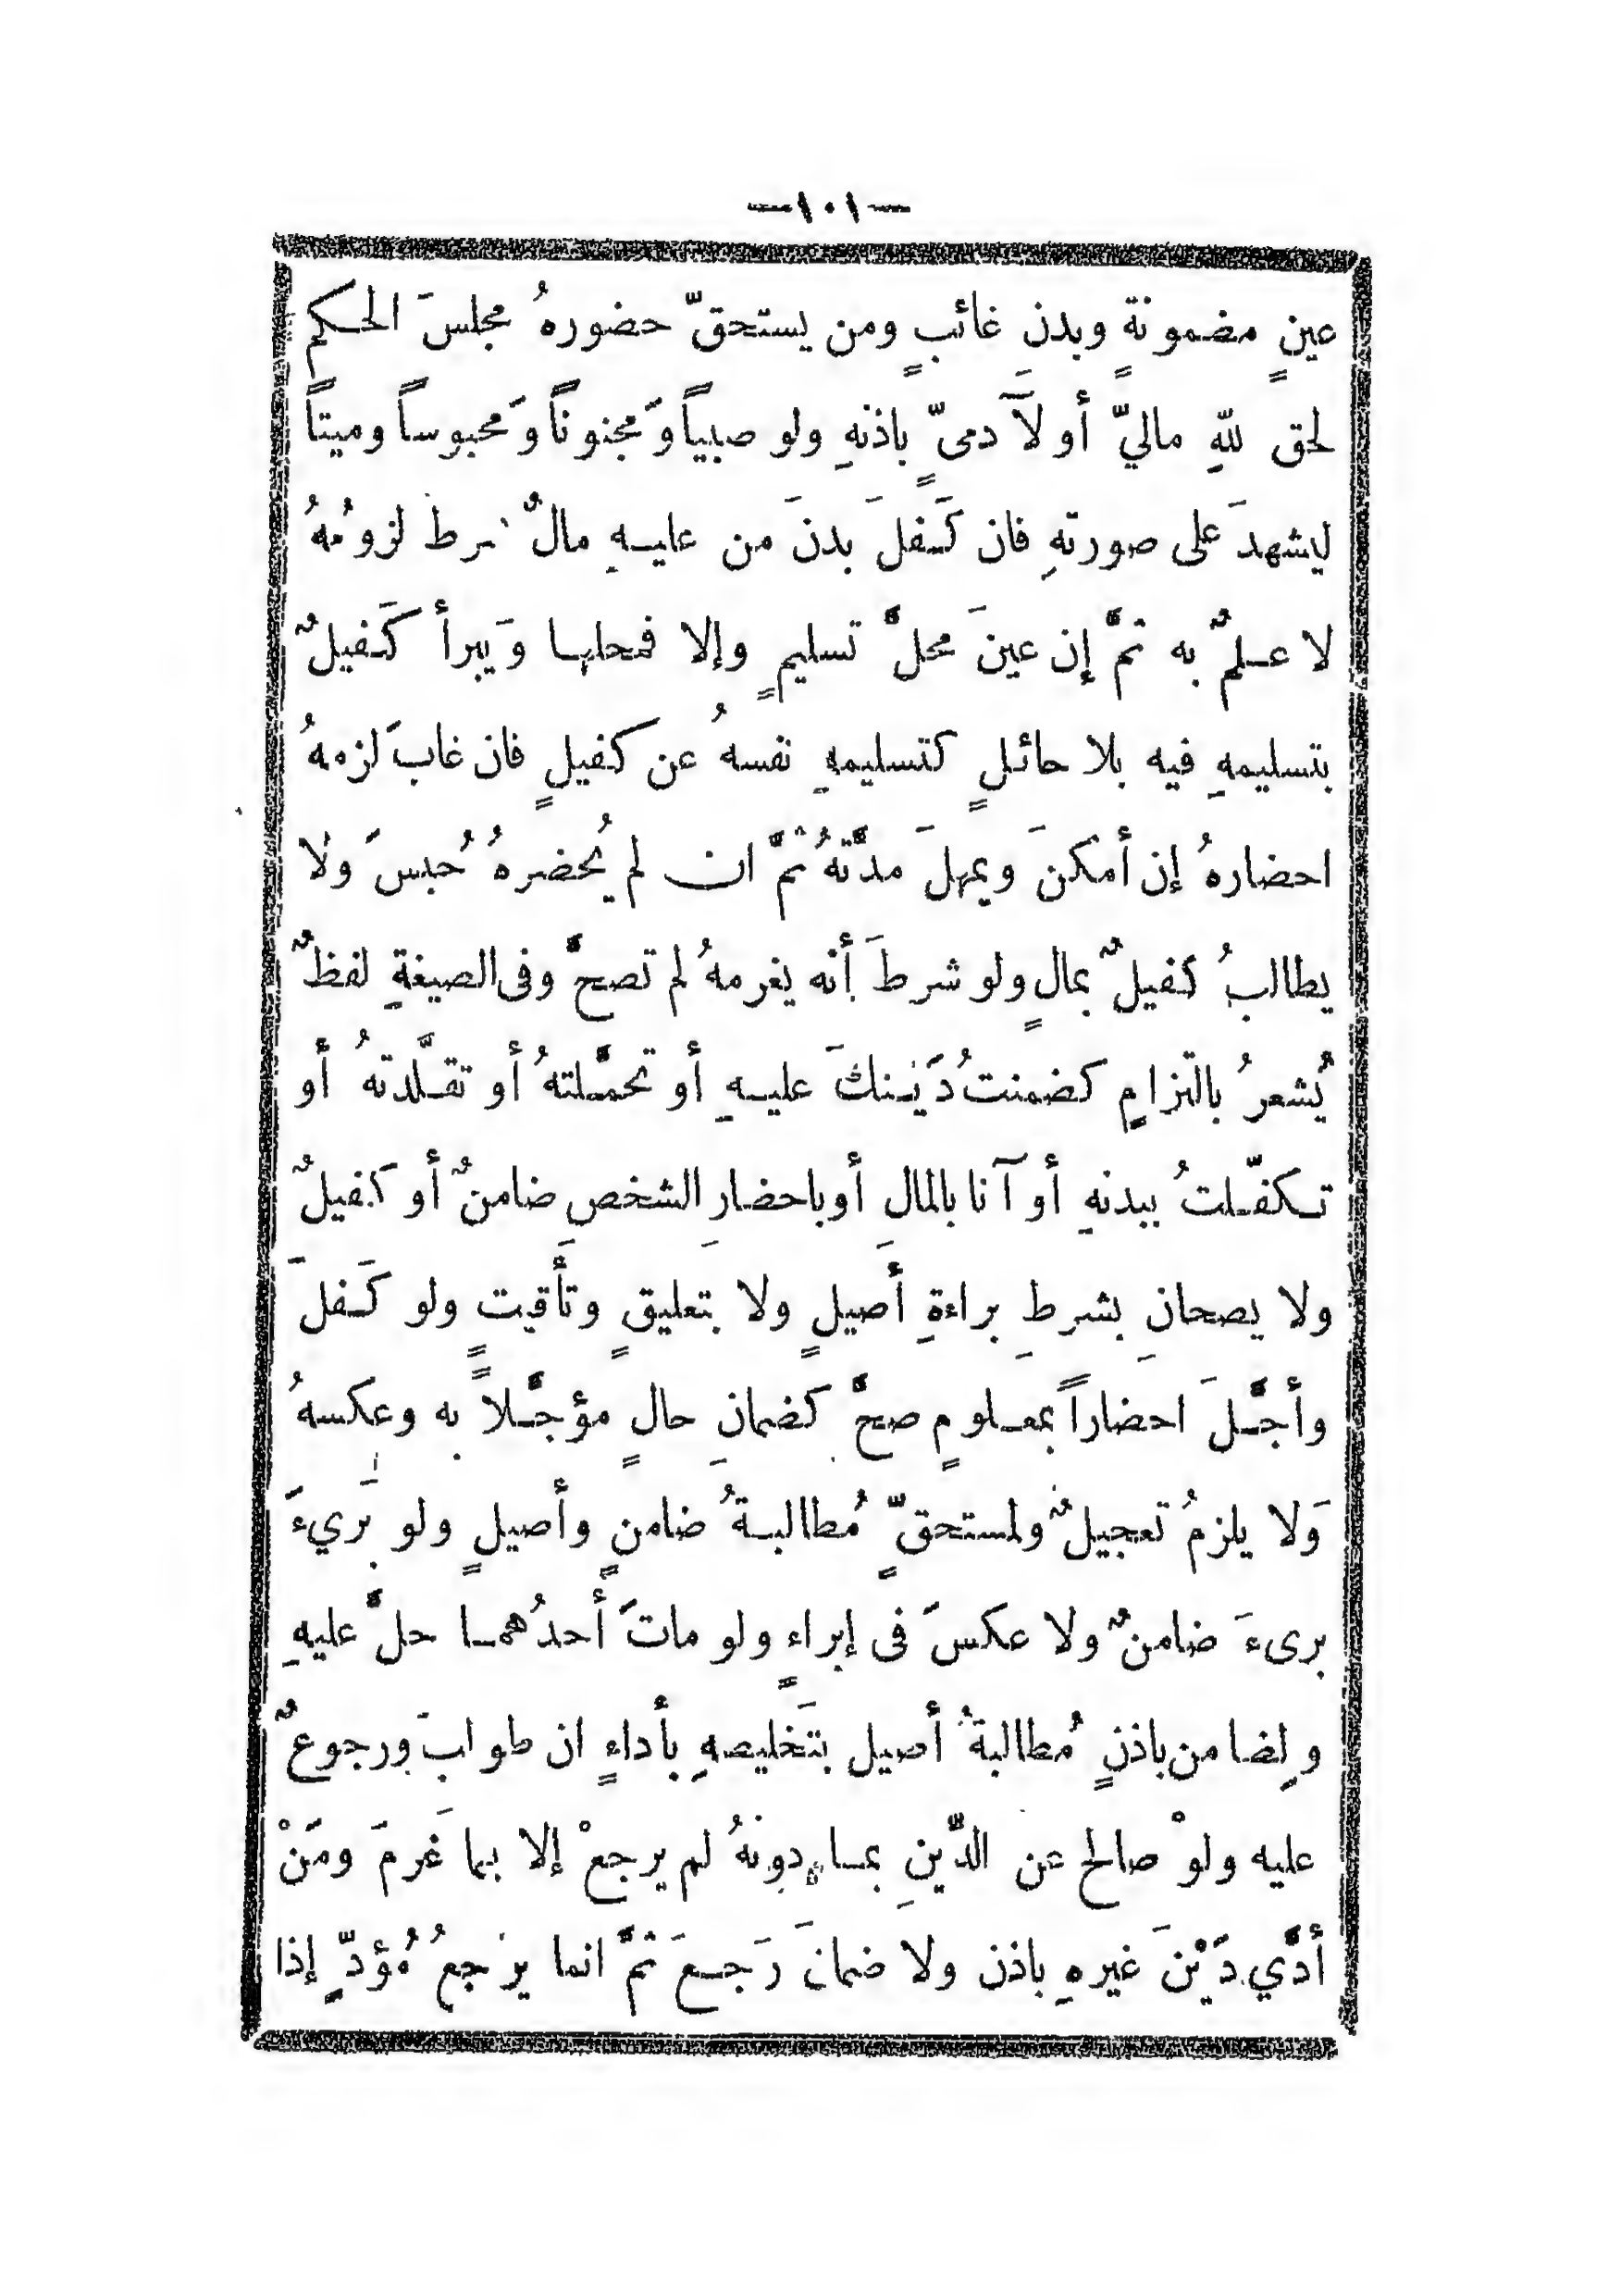 —١٠١—
عينٍ مضمونةٍ وبدنَ غائبٍ ومن يستحقّ حضورهُ مجلسَ الحكم
لحق للهِ ماليّ أو لآدمىّ ٍ باذنهِ ولو صبياً وَمجنوناً وَمحبوساً وميتاً
ليشهدَ على صورتهِ فان كَفلَ بدنَ من عليهِ مالٌ شرط لزومُهُ
لا علمٌ به ثمَّ إن عينَ محلَّ تسليمٍ وإلا فمحلها وَيبرأ كَفيلٌ
بتسليمهِ فيه بلا حائلٍ كتسليمهِ نفسهُ عن كفيلٍ فان غابَ لزمهُ
احضارهُ إن أمكنَ ويمهلَ مدَّتهُ ثُمَّ ان لم يُحضرهُ حُبسَ ولا
يطالبُ كفيلٌ بمالٍ ولو شرطَ أنه يغرمهُ لم تصحَّ وفى الصيغةِ لفظٌ
يُشعرُ بالتزامٍ كضمنتُ دَيْنكَ عليهِ أو تحمَّلتهُ أو تقلَّدتهُ أو
تكفّلتُ ببدنهِ أو آنا بالمالِ أو باحضارِ الشخصِ ضامنٌ أو كفيلٌ
ولا يصحانِ بشرطِ براءةِ أَصيلٍ ولا بتعليقٍ وتأَقيتٍ ولو كَفلَ
وأجَّلَ احضاراً بمعلومٍ صحَّ كضمانِ حالٍ مؤجَّلاً به وعكسهُ
وَلا يلزمُ تعجيلٌ ولمستحقّ ٍ مُطالبةُ ضامنٍ وأصيلٍ ولو بَريءَ
برىءَ ضامنٌ ولا عكسَ فى إبراءٍ ولو ماتَ أحدُهما حلَّ عليهِ
ولِضامن باذنٍ مُطالبةُ أصيل بتَخليصهِ بأداءٍ ان طولبَ ورجوعٌ
عليه ولوْ صالح عن الدَّينِ بما دونهُ لم يرجعْ إلا بما غَرمَ ومَنْ
أدَّي دَيْنَ غيرهِ باذن ولا ضمانَ رَجعَ ثمَّ انما يرْجعُ مُؤدّ ٍ إذا